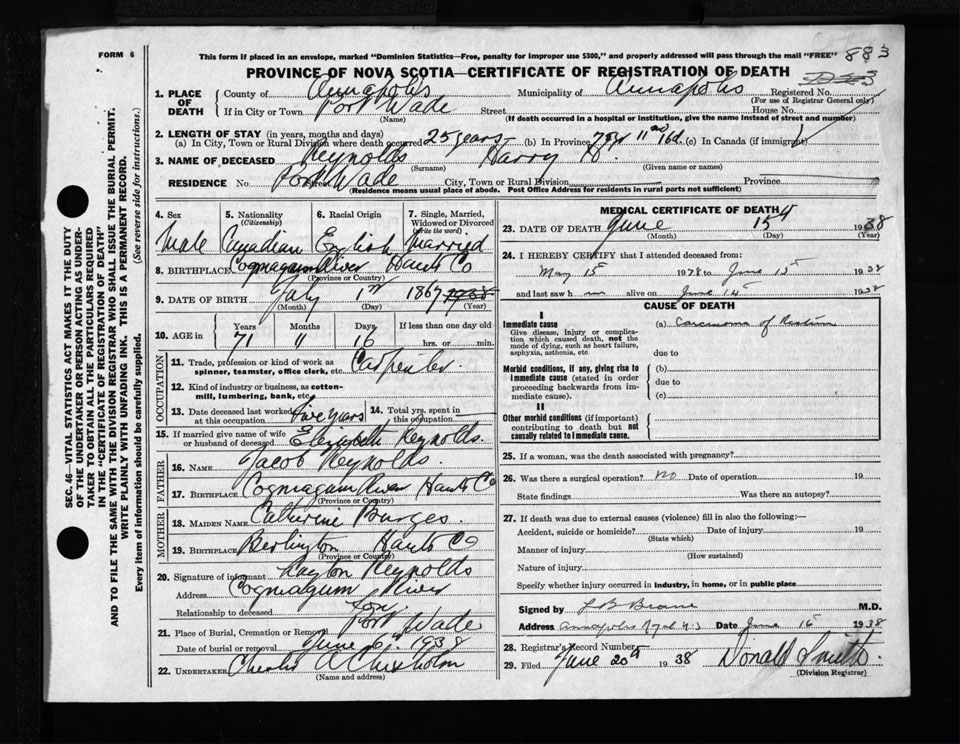 FORM 6
This form if placed in an envelope, marked "Dominion Statistics—Free, penalty for improper use $300," and properly addressed will pass through the mail "FREE"
883
PROVINCE OF NOVA SCOTIA—CERTIFICATE OF REGISTRATION OF DEATH
1. PLACE OF DEATH
County of Annapolis Municipality of Annapolis Registered No.
(For use of Registrar General only)
If in City or Town Port Wade Street House No.
(Name) (If death occurred in a hospital or institution, give the name instead of street and number)
2. LENGTH OF STAY (in years, months and days)
(a) In City, Town or Rural Division where death occurred 25 years (b) In Province 11 16d. (c) In Canada (if immigrant)
3. NAME OF DECEASED Reynolds Harry
(Surname) (Given name or names)
RESIDENCE No Street Port Wade City, Town or Rural Division Province
(Residence means usual place of abode. Post Office Address for residents in rural parts not sufficient)
4. Sex Male
5. Nationality (Citizenship) Canadian
6. Racial Origin English
7. Single, Married, Widowed or Divorced (write the word) Married
8. BIRTHPLACE Cogmagum River Hants Co
(Province or Country)
9. DATE OF BIRTH July 1st 1867 1938
(Month) (Day) (Year)
10. AGE in Years 71 Months 11 Days 16 If less than one day old hrs. or min.
OCCUPATION
11. Trade, profession or kind of work as spinner, teamster, office clerk, etc. Carpenter
12. Kind of industry or business, as cotton-mill, lumbering, bank, etc.
13. Date deceased last worked at this occupation five years
14. Total yrs. spent in this occupation
15. If married give name of wife or husband of deceased Elizabeth Reynolds.
FATHER
16. NAME Jacob Reynolds.
17. BIRTHPLACE Cogmagum River Hants Co
(Province or Country)
MOTHER
18. MAIDEN NAME Catherine Burges.
19. BIRTHPLACE Berlington Hants Co
(Province or Country)
20. Signature of informant Layton Reynolds
Address Cogmagum River
Relationship to deceased Son
21. Place of Burial, Cremation or Removal Port Wade
Date of burial or removal June 1938
22. UNDERTAKER Charles A Chisholm
(Name and address)
MEDICAL CERTIFICATE OF DEATH
23. DATE OF DEATH June 15th 1938
(Month) (Day) (Year)
24. I HEREBY CERTIFY that I attended deceased from:
May 15 to June 15 1938
and last saw him alive on June 14 1938
CAUSE OF DEATH
I
Immediate cause
Give disease, injury or complication which caused death, not the mode of dying, such as heart failure, asphyxia, asthenia, etc
(a) Carcinoma of Rectum
due to
Morbid conditions, if any, giving rise to immediate cause (stated in order proceeding backwards from immediate cause).
(b)
due to
(c)
II
Other morbid conditions (if important) contributing to death but not causally related to immediate cause.
25. If a woman, was the death associated with pregnancy?
26. Was there a surgical operation? No Date of operation 19
State findings Was there an autopsy?
27. If death was due to external causes (violence) fill in also the following:—
Accident, suicide or homicide? Date of injury 19
(State which)
Manner of injury
(How sustained)
Nature of injury
Specify whether injury occurred in industry, in home, or in public place
Signed by M.D.
Address Annapolis Royal N.S Date June 15 1938
28. Registrar's Record Number
29. Filed June 20th 1938 Donald Smith
(Division Registrar)
SEC. 46—VITAL STATISTICS ACT MAKES IT THE DUTY
OF THE UNDERTAKER OR PERSON ACTING AS UNDER-
TAKER TO OBTAIN ALL THE PARTICULARS REQUIRED
IN THE "CERTIFICATE OF REGISTRATION OF DEATH"
AND TO FILE THE SAME WITH THE DIVISION REGISTRAR WHO SHALL ISSUE THE BURIAL PERMIT.
WRITE PLAINLY WITH UNFADING INK. THIS IS A PERMANENT RECORD.
Every item of information should be carefully supplied. (See reverse side for instructions.)